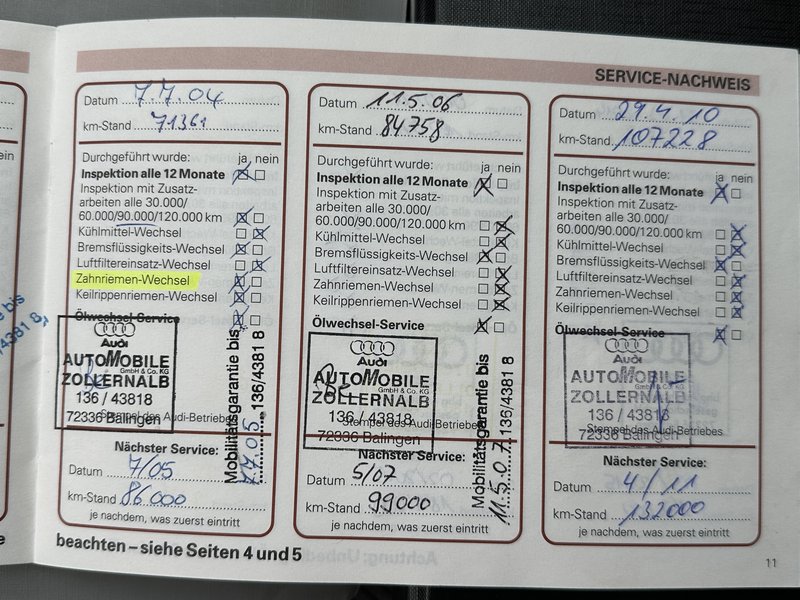 SERVICE-NACHWEIS
Datum 7.7.04
km-Stand 71361
Durchgeführt wurde: ja nein
Inspektion alle 12 Monate
Inspektion mit Zusatz-
arbeiten alle 30.000/
60.000/90.000/120.000 km
Kühlmittel-Wechsel
Bremsflüssigkeits-Wechsel
Luftfiltereinsatz-Wechsel
Zahnriemen-Wechsel
Keilrippenriemen-Wechsel
Ölwechsel-Service
Audi
AUTOMOBILE
GmbH & Co. KG
ZOLLERNALB
136 / 43818
72336 Balingen
Stempel des Audi-Betriebes
Mobilitätsgarantie bis
136/4381 8
Nächster Service:
Datum 7/05
km-Stand 86000
je nachdem, was zuerst eintritt
Datum 11.5.06
km-Stand 84758
Durchgeführt wurde: ja nein
Inspektion alle 12 Monate
Inspektion mit Zusatz-
arbeiten alle 30.000/
60.000/90.000/120.000 km
Kühlmittel-Wechsel
Bremsflüssigkeits-Wechsel
Luftfiltereinsatz-Wechsel
Zahnriemen-Wechsel
Keilrippenriemen-Wechsel
Ölwechsel-Service
Audi
AUTOMOBILE
GmbH & Co. KG
ZOLLERNALB
136 / 43818
72336 Balingen
Stempel des Audi-Betriebes
Mobilitätsgarantie bis
11.5.07 136/4381 8
Nächster Service:
Datum 5/07
km-Stand 99000
je nachdem, was zuerst eintritt
Datum 29.4.10
km-Stand 107228
Durchgeführt wurde: ja nein
Inspektion alle 12 Monate
Inspektion mit Zusatz-
arbeiten alle 30.000/
60.000/90.000/120.000 km
Kühlmittel-Wechsel
Bremsflüssigkeits-Wechsel
Luftfiltereinsatz-Wechsel
Zahnriemen-Wechsel
Keilrippenriemen-Wechsel
Ölwechsel-Service
Audi
AUTOMOBILE
GmbH & Co. KG
ZOLLERNALB
136 / 43818
72336 Balingen
Stempel des Audi-Betriebes
Nächster Service:
Datum 4/11
km-Stand 132000
je nachdem, was zuerst eintritt
beachten – siehe Seiten 4 und 5
11